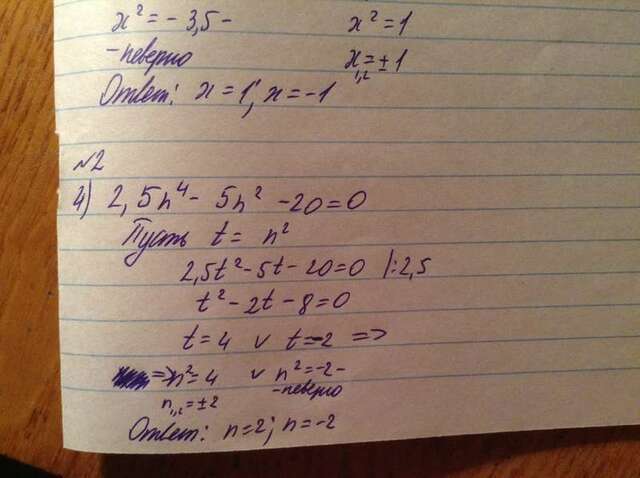 x² = - 3,5 - x² = 1
- неверно x₁,₂ = ± 1
Ответ: x = 1; x = -1
№2
4) 2,5n⁴ - 5n² - 20 = 0
Пусть t = n²
2,5t² - 5t - 20 = 0 |:2,5
t² - 2t - 8 = 0
t = 4 v t = -2 =>
=> n² = 4 v n² = -2 -
n₁,₂ = ±2 - неверно
Ответ: n = 2; n = -2